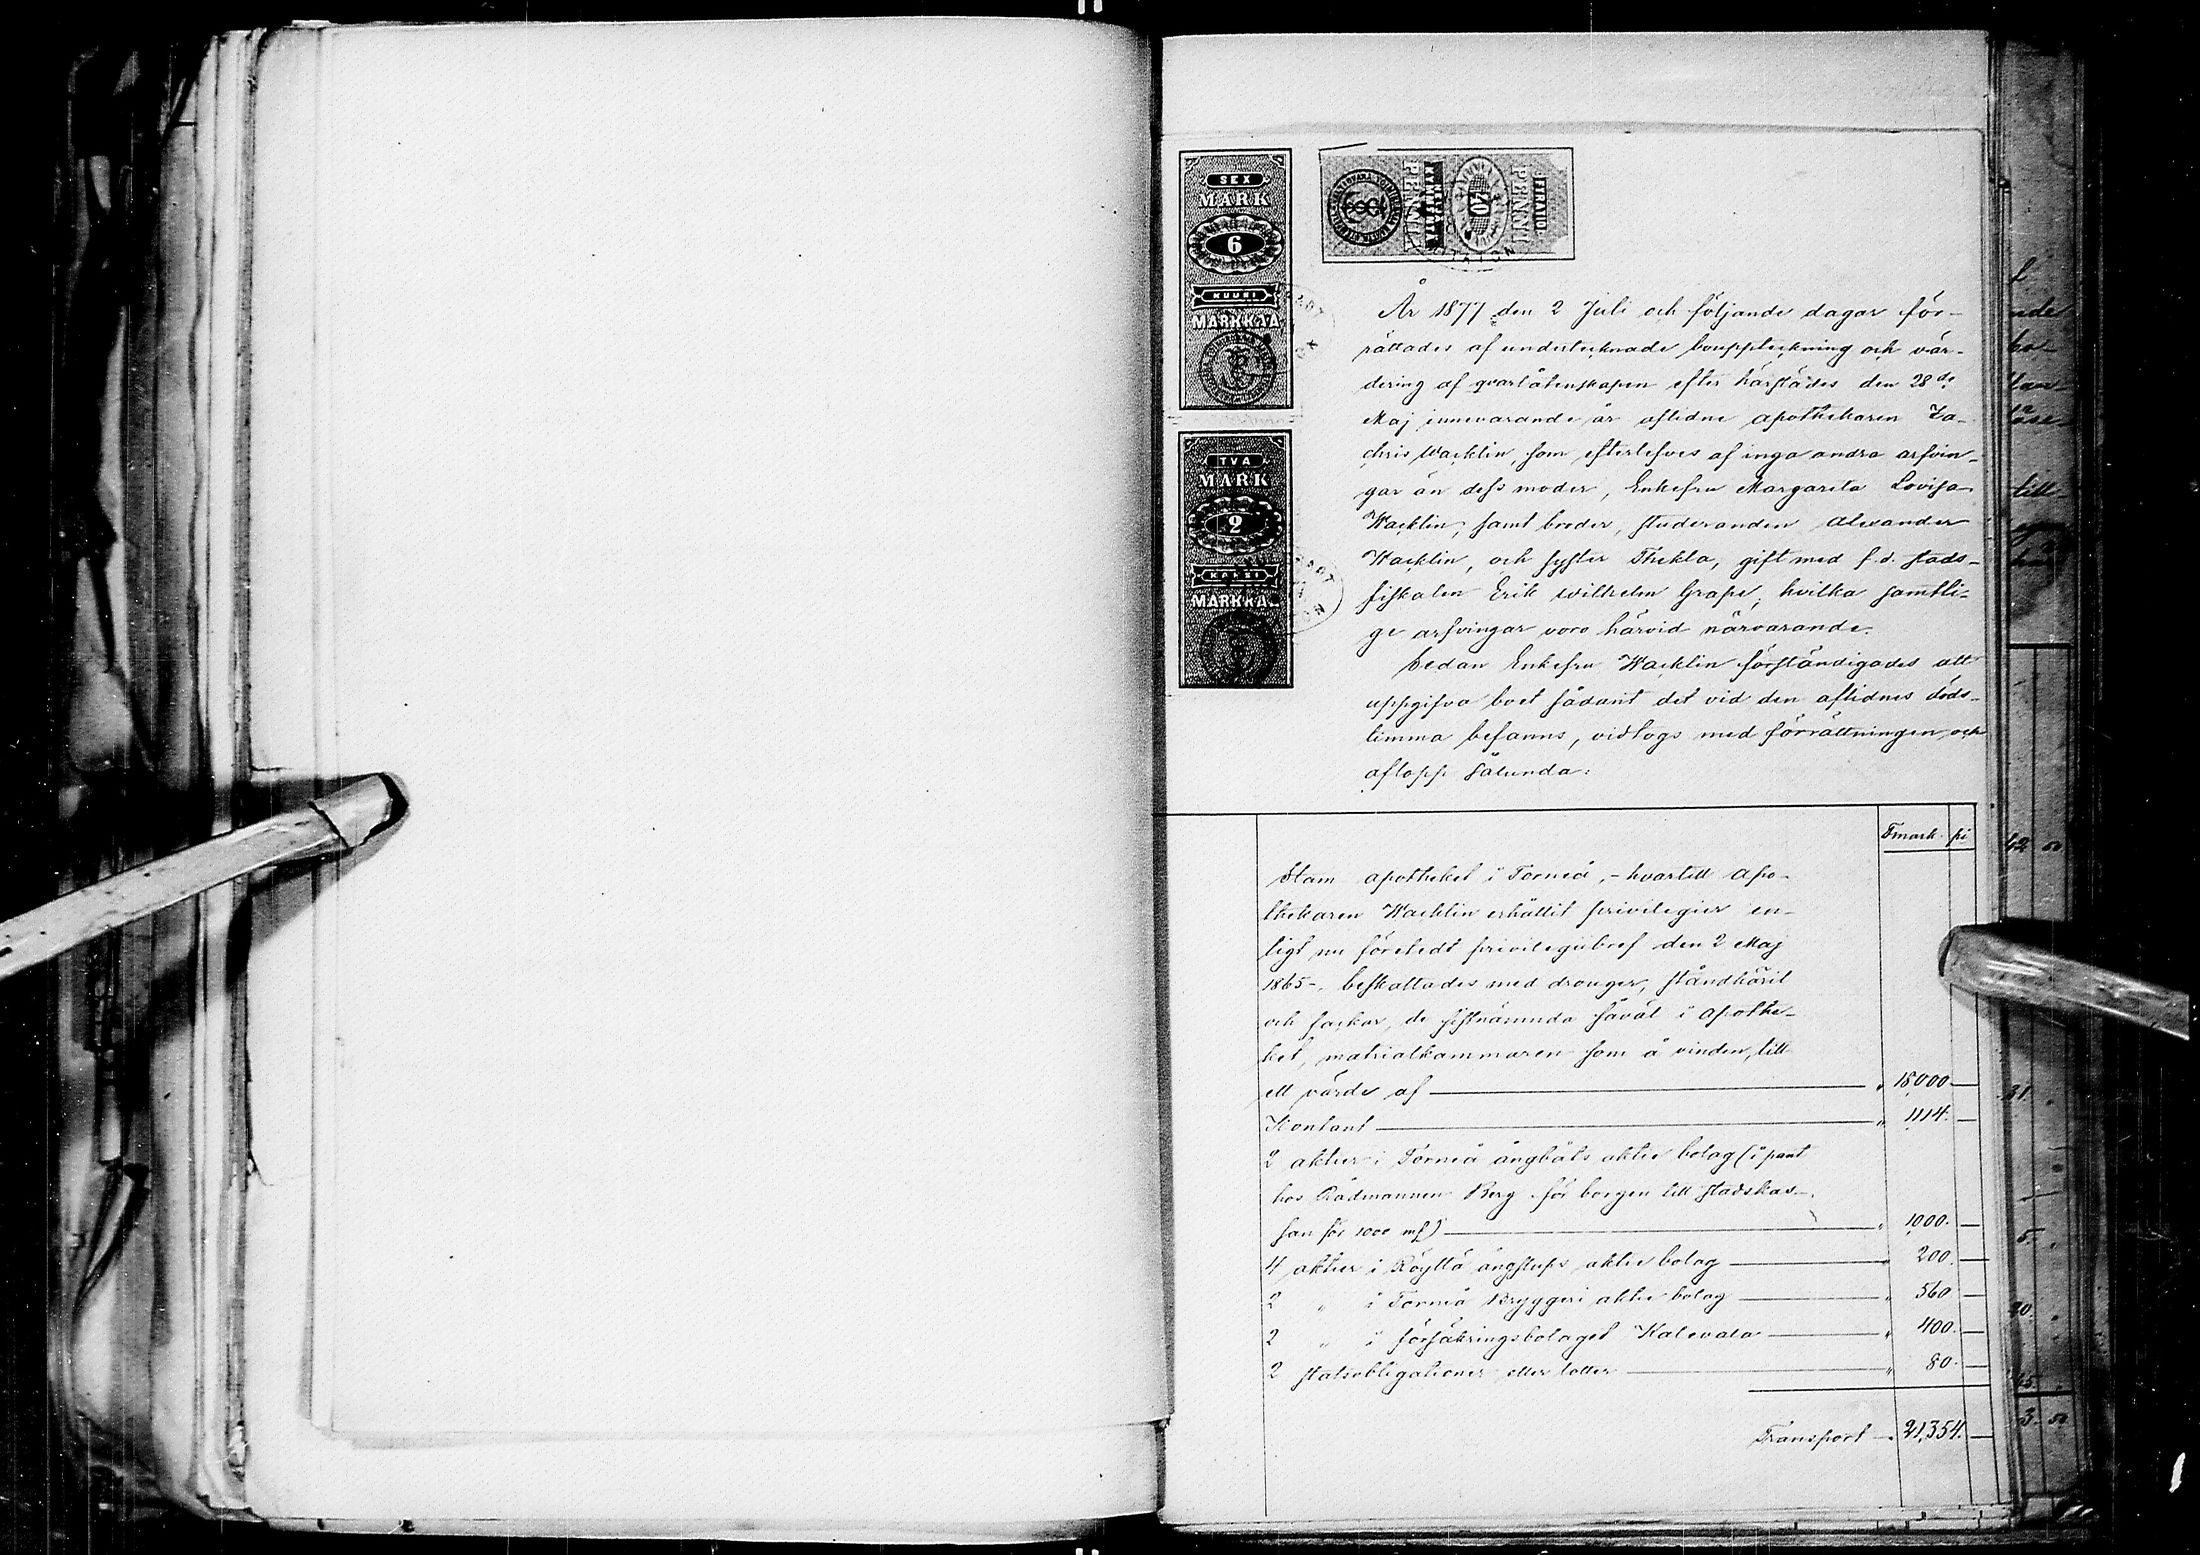 SEX
MARK
6
KUUSI
MARKKAA
TVÅ
MARK
2
KAKSI
MARKKAA
PENNI
År 1877 den 2 Juli och följande dagar för-
rättades af undertecknade bouppteckning och vär-
dering af qvarlåtenskapen efter härstädes den 28de
Maj innevarande år aflidne apothekaren Za-
chris Wacklin, som efterlefves af inga andra arfvin-
gar än dess moder, Enkefru Margareta Lovisa
Wacklin, samt broder, studeranden Alexander
Wacklin, och syster Thekla, gift med f.d. stads-
fiskalen Erik Wilhelm Grape, hvilka samtli-
ge arfvingar voro härvid närvarande.
Sedan Enkefru Wacklin förständigades att
uppgifva boet sådant det vid den aflidnes döds-
timma befanns, vidtogs med förrättningen och
aflopp sålunda:
Fmark pi
Stam apotheket i Torneå, - hvartill apo-
thekaren Wacklin erhållit privilegier en-
ligt nu företedt privilegiibref den 2 Maj
1865 -, beskattades med drouger, ståndkäril
och sackar, de sistnämnda såväl i apothe-
ket, matrialkammaren som å vinden, till
ett värde af " 18,000 —
Kontant " 1,114. —
2 aktier i Torneå ångbåts aktie bolag (i pant
hos Rådmannen Berg för borgen till stadskas-
san för 1000 mf) " 1,000. —
4 aktier i Röyttä ångslups aktie bolag " 200. —
2 " i Torneå Bryggeri aktie bolag " 560 —
2 " i försäkringsbolaget Kalevala " 400. —
2 statsobligationer eller lotter " 80. —
Transport " 21,354. —